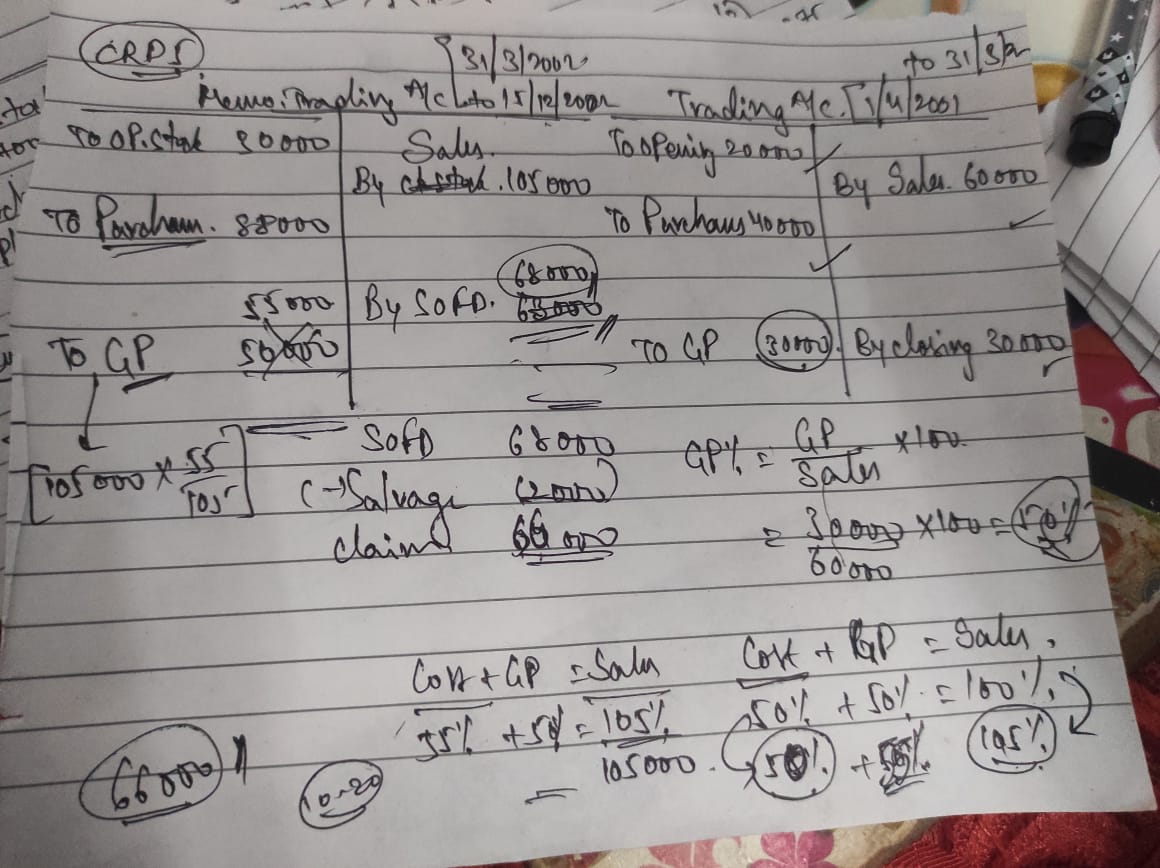 CRDS
31/3/2002 to 31/3/2
Memo. Trading A/c to 15/12/2002 Trading A/c. [1/4/2001
To OP. Stock 30000 Sales. To Opening 20000
By 105000 By Sales. 60000
To Purchases. 88000 To Purchases 40000
68000
55000 By SOFD. 68000
To GP 50000 To GP 30000 By closing 30000
SOFD 68000 GP% = GP/Sales × 100
[105000 × 55/105] (-) Salvage (2000)
claim 66000 = 30000/60000 × 100 = 50%
Cost + GP = Sales Cost + GP = Sales,
55% + 50% = 105% 50% + 50% = 100%
105000. 50% + 105%
66000
10-20